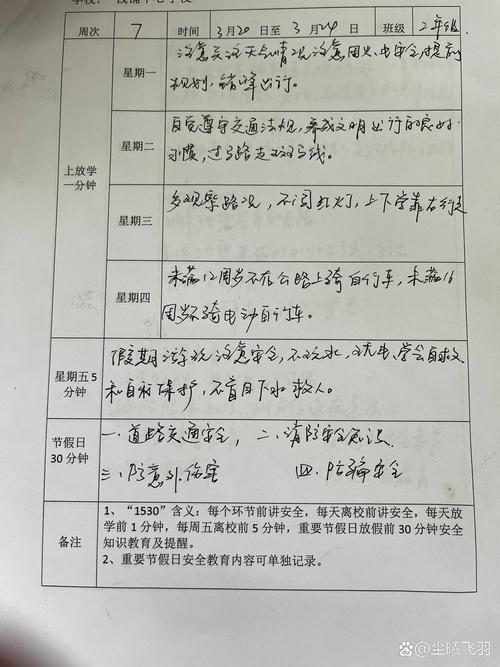 周次 7 时间 3月20日至3月24日 班级 2年级
星期一 注意关注天气情况注意用火、电安全,提前
规划,错峰出行。
星期二 自觉遵守交通法规,养成文明出行的良好
习惯,过马路走斑马线。
上放学
一分钟
星期三 多观察路况,不闯红灯,上下学靠右行走
星期四 未满12周岁不在公路上骑自行车,未满16
周岁不骑电动自行车。
星期五5
分钟
假期游玩注意安全,不玩水、玩电、学会自救
和自我保护,不盲目下水救人。
节假日
30分钟
一、道路交通安全, 二、消防安全知识
三、防意外伤害 四、防骗安全
备注
1、“1530”含义:每个环节前讲安全,每天离校前讲安全,每天放
学前1分钟,每周五离校前5分钟,重要节日放假前30分钟安全
知识教育及提醒。
2、重要节假日安全教育内容可单独记录。
Bai百度 @尘曦飞羽